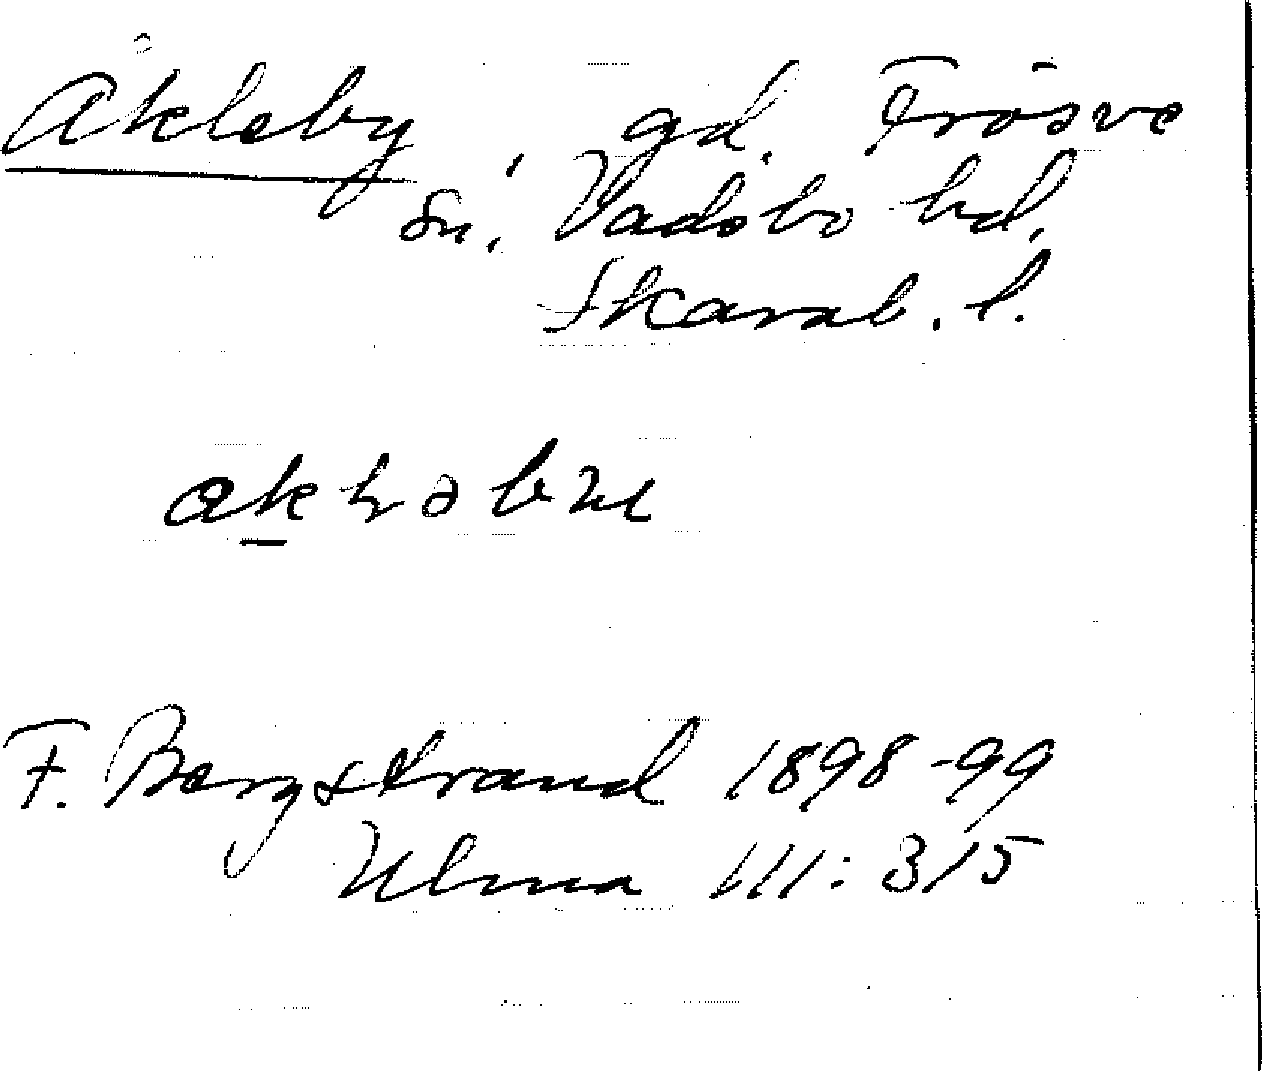 Åkleby, gd, Frösve
sn. Vadsbo hd.
Skarab. l.
F. Bergstrand 1898-99
Ulma 111:315